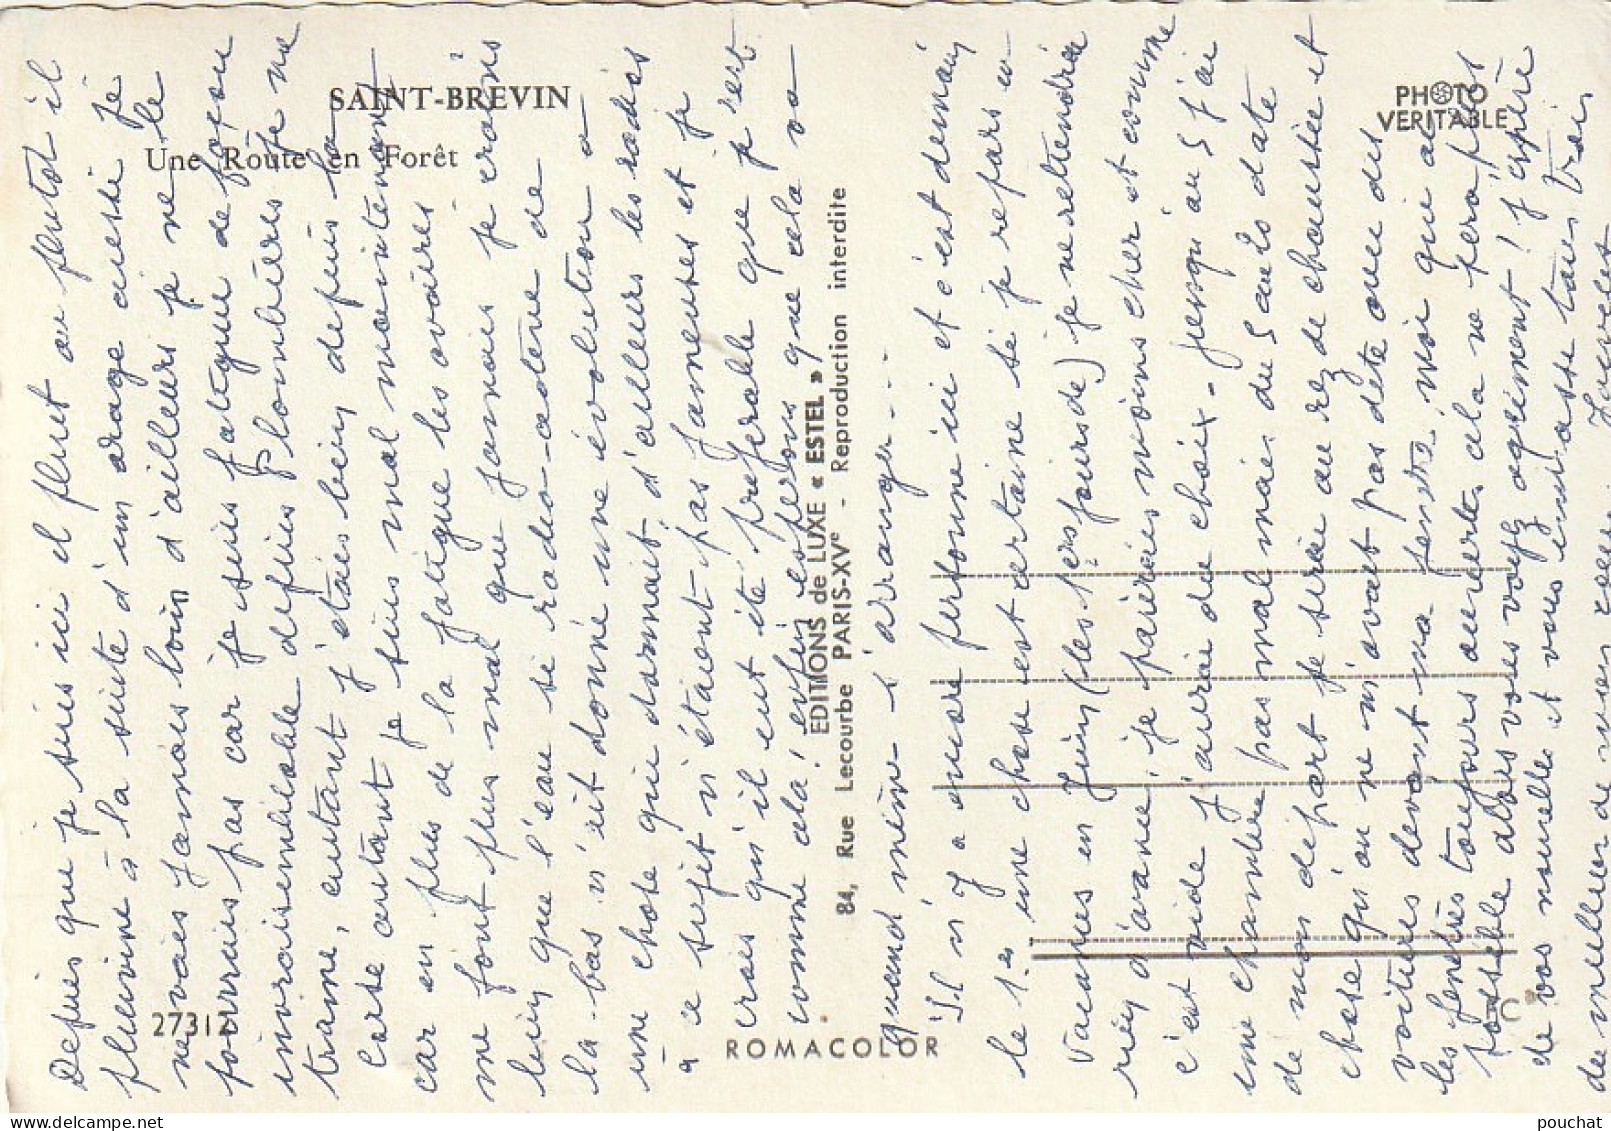 SAINT-BREVIN
Une Route en Forêt
PHOTO
VERITABLE
EDITIONS de LUXE « ESTEL »
84, Rue Lecourbe PARIS-XVe - Reproduction interdite
27312
ROMACOLOR
C
Depuis que je suis ici il pleut ou plutot il
pleuvine à la suite d'un orage aussi je
ne vais jamais loin d'ailleurs je ne le
pourrais pas car je suis fatiguée de façon
invraisemblable depuis Plombières je me
traine, autant j'étais bien depuis la
Corse autant je suis mal maintenant
car en plus de la fatigue les ovaires
me font plus mal que jamais je crois
bien que l'eau si radio-active de
là-bas n'ait donné une évolution a
une chose qui dormait, d'ailleurs les radios
à ce sujet n'étaient pas fameuses et je
crois qu'il eut été préférable que je reste
comme cela! enfin espérons que cela va
quand même s'arranger...
Il n'y a encore personne ici et c'est demain
le 1er une chose est certaine si je repars en
Vacances en Juin (les 1ers jours de) je ne retiendrai
rien d'avance, je paierais moins cher et comme
c'est vide j'aurai du choix - jusqu'au 5 j'ai
une chambre pas mal mais du 5 au date
de mon départ je serai au rez de chaussée et
chose qu'on ne m'avait pas dite avec des
voitures devant ma fenêtre, moi qui ai
les fenêtres toujours ouvertes cela ne sera pas
possible alors vous voyez agrément! J'espère
de vos nouvelles et vous embrasse tous Trois
du meilleur de mon coeur